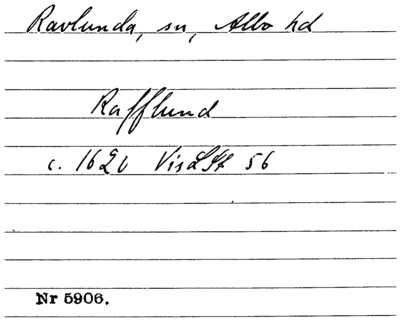 Ravlunda, sn, Albo hd
Rafflund
c. 1620 VisLSk 56
Nr 5906.